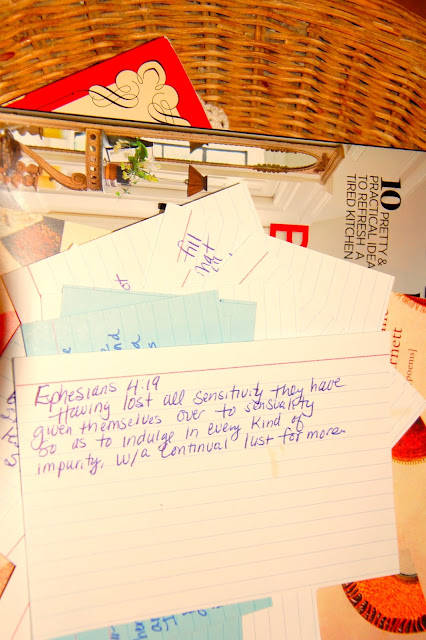 10
PRETTY &
PRACTICAL IDEA
TO REFRESH A
TIRED KITCHEN
fill
that
nett
poems]
Ephesians 4:19
Having lost all sensitivity they have
given themselves over to sensuality
so as to indulge in every kind of
impurity, w/a continual lust for more.